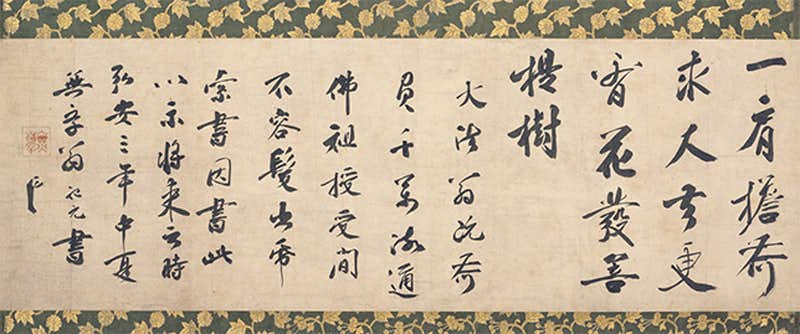 一肩擔荷
人更
花發菩
提樹
大法荷
負千萬流通
佛祖授受間
不容髮出
索書因書此
以示將來云時
弘安三年中夏
無學翁祖元書